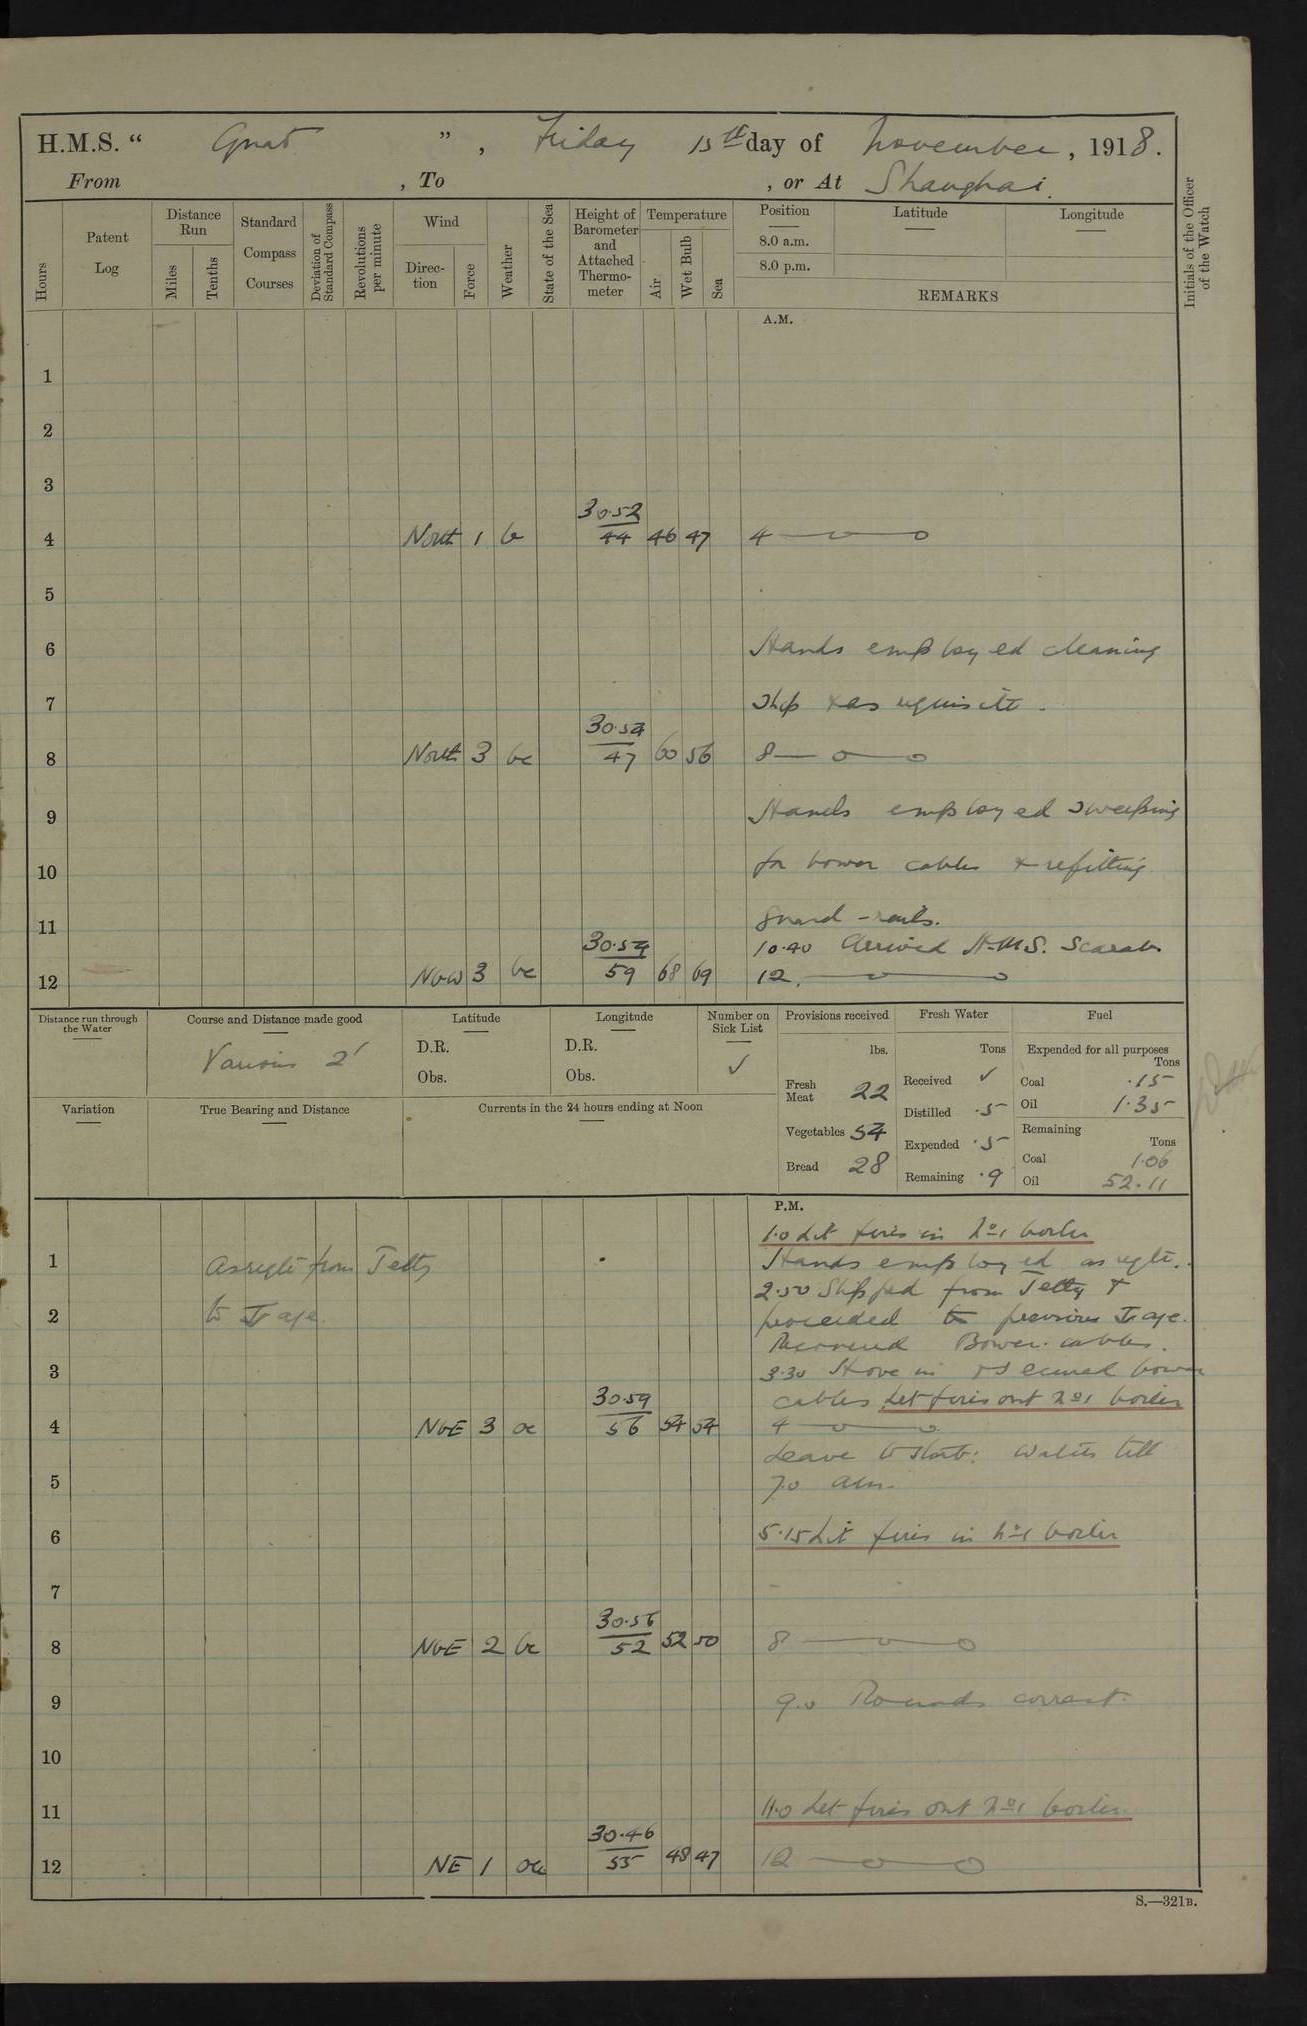 H.M.S. “ Gnat ” , Friday 15th day of November , 1918.
From , To , or At Shanghai.
Initials of the Officer of the Watch
Hours
Patent Log
Distance Run
Miles
Tenths
Standard Compass Courses
Deviation of Standard Compass
Revolutions per minute
Wind
Direc-tion
Force
Weather
State of the Sea
Height of Barometer and Attached Thermo-meter
Temperature
Air
Wet Bulb
Sea
Position
8.0 a.m.
8.0 p.m.
Latitude
Longitude
REMARKS
A.M.
1
2
3
30.52
4 North 1 b 44 46 47 4
5
6 Hands employed cleaning
7 Ship & as requisite.
30.54
8 North 3 bc 47 60 56 8
9 Hands employed sweeping
10 for bower cables & refitting
11 guard-rails.
30.54 10.40 Arrived H.M.S. Scarab
12 NbW 3 bc 59 68 69 12.
Distance run through the Water
Course and Distance made good
Various 2'
Latitude
D.R.
Obs.
Longitude
D.R.
Obs.
Number on Sick List
✓
Provisions received
lbs.
Fresh Meat 22
Vegetables 54
Bread 28
Fresh Water
Tons
Received ✓
Distilled .5
Expended .5
Remaining .9
Fuel
Expended for all purposes
Tons
Coal .15
Oil 1.35
Remaining
Tons
Coal 1.06
Oil 52.11
Variation
True Bearing and Distance
Currents in the 24 hours ending at Noon
P.M.
1.0 Lit fires in No1 boiler
1 As reqte from Jetty Hands employed as reqte.
2.50 Slipped from Jetty &
2 to proceeded to previous
Bower cables.
3 3.30 Hove in & secured bower
30.59 cables Let fires out No1 boiler
4 NbE 3 oc 56 54 54 4
Leave to Starb: Watch till
5 7.0 am.
6 5.15 Lit fires in No1 boiler
7
30.56
8 NbE 2 bc 52 52 50 8
9 9.0 Rounds correct.
10
11 11.0 Let fires out No1 boiler
30.46
12 NE 1 oc 55 48 47 12
S.—321B.